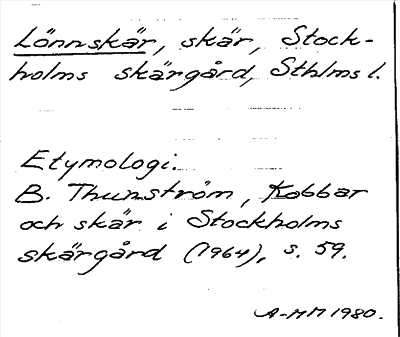 Lönnskär, skär, Stock-
holms skärgård, Sthlms l.
Etymologi.
B. Thunström, Kobbar
och skär i Stockholms
skärgård (1964), s. 59.
A-MM 1980.